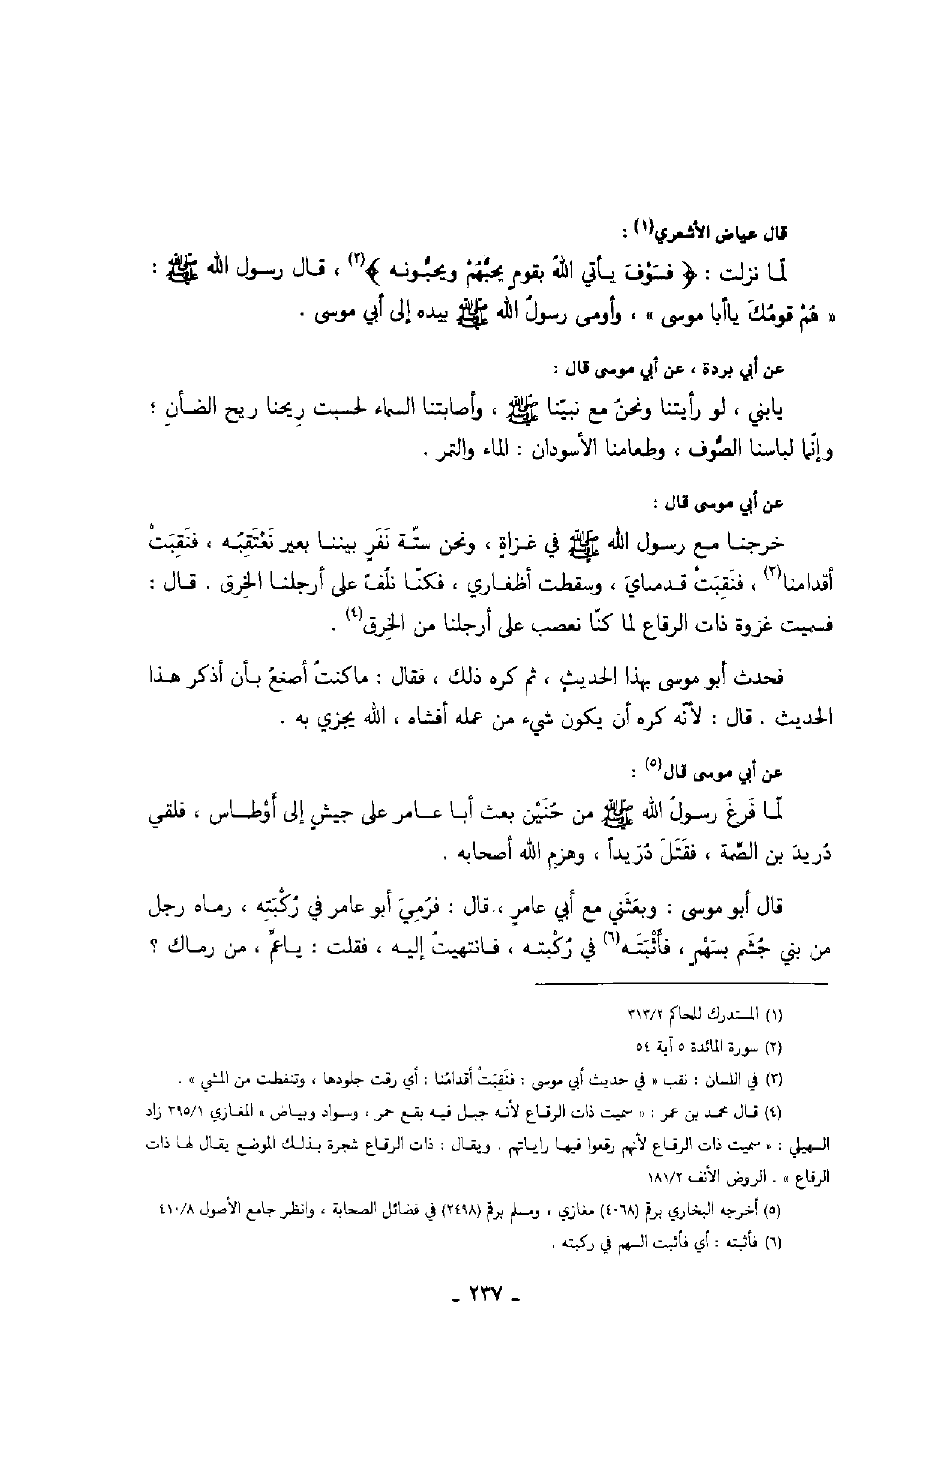 قال عياض الأشعري(١) :
لما نزلت : ﴿ فسَوْفَ يـأتي اللهُ بقومٍ يحبُّهُمْ ويحبُّونـه ﴾(٢) ، قـال رسـول الله ﷺ :
« هُمْ قومُكَ ياأبا موسى » ، وأومى رسولُ الله ﷺ بيده إلى أبي موسى .
عن أبي بردة ، عن أبي موسى قال :
يابني ، لو رأيتنا ونحنُ مع نبيّنا ﷺ ، وأصابتنا السماء لحسبت ريحنا ريح الضـأنِ ؛
وإنّما لباسنا الصُّوف ، وطعامنا الأسودان : الماء والتمر .
عن أبي موسى قال :
خرجنـا مـع رسـول الله ﷺ في غـزاةٍ ، ونحن ستّـة نَفَرٍ بيننـا بعير نَعْتَقِبُـه ، فنَقِبَتْ
أقدامنا(٣) ، فنَقِبَتْ قـدمـايَ ، وسقطت أظفـاري ، فكنّـا نلُفّ على أرجلنـا الخِرق . قـال :
فسميت غزوة ذات الرقاع لما كنّا نعصب على أرجلنا من الخِرق(٤) .
فحدث أبو موسى بهذا الحديثِ ، ثم كره ذلك ، فقال : ماكنتُ أصنعُ بـأن أذكر هـذا
الحديث . قال : لأنّه كره أن يكون شيء من عمله أفشاه ، الله يجزي به .
عن أبي موسى قال(٥) :
لمّا فَرغَ رسولُ الله ﷺ من حُنَيْن بعث أبـا عـامر على جيشٍ إلى أَوْطـاس ، فلقي
دُريدَ بن الصِّمة ، فقَتَلَ دُرَيداً ، وهزم الله أصحابه .
قال أبو موسى : وبعَثَني مع أبي عامرٍ ، قال : فرُميَ أبو عامر في رُكْبَتِه ، رماه رجل
من بني جُشَم بسَهْمٍ ، فأَثْبَتَـه(٦) في رُكْبتـه ، فـانتهيتُ إليـه ، فقلت : يـاعمِّ ، من رماك ؟
(١) المستدرك للحاكم ٣١٣/٢
(٢) سورة المائدة ٥ آية ٥٤
(٣) في اللسان : نقب « في حديث أبي موسى : فنَقِبَتْ أقدامُنا : أي رقت جلودها ، وتنفطت من المشي » .
(٤) قـال محمد بن عمر : « سميت ذات الرقـاع لأنـه جبـل فيـه بقـع حمر ، وسـواد وبيـاض » المغـازي ٣٩٥/١ زاد
السهيلي : « سميت ذات الرقاع لأنهم رقعوا فيهـا رايـاتهم . ويقـال : ذات الرقـاع شجرة بـذلـك الموضع يقـال لهـا ذات
الرقاع » . الروض الأنف ١٨١/٢
(٥) أخرجه البخاري برقم (٤٠٦٨) مغازي ، ومسلم برقم (٢٤٩٨) في فضائل الصحابة ، وانظر جامع الأصول ٤١٠/٨
(٦) فأثبته : أي فأثبت السهم في ركبته .
ـ ٢٣٧ ـ